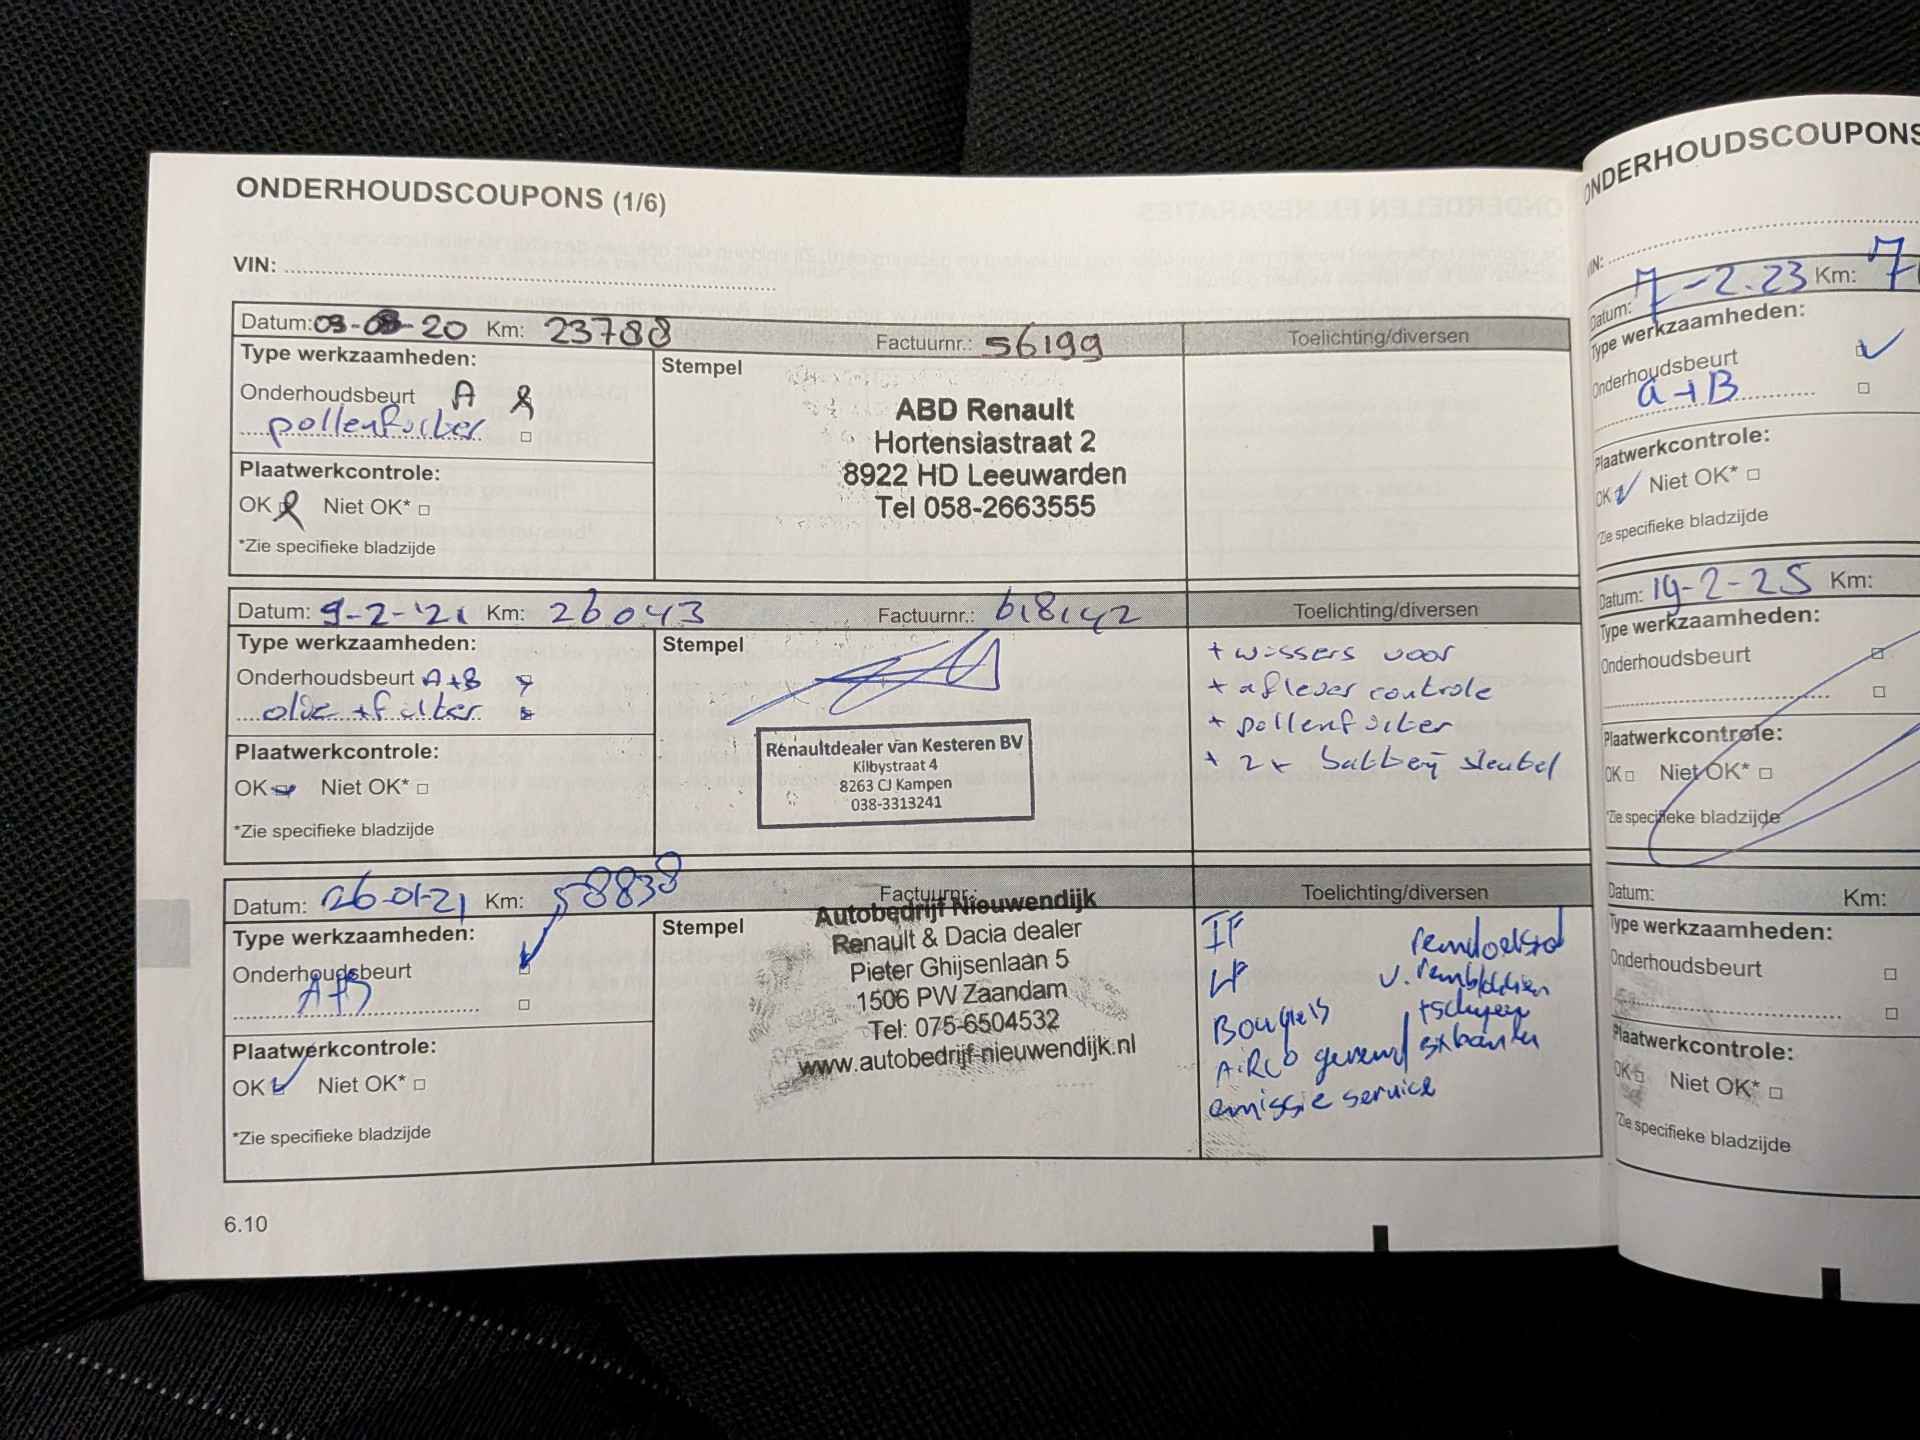 ONDERHOUDSCOUPONS (1/6)
VIN:
Datum: 03-08-20 Km: 23788 Factuurnr.: 56199 Toelichting/diversen
Type werkzaamheden:
Onderhoudsbeurt A
pollenfilter
Plaatwerkcontrole:
OK Niet OK*
*Zie specifieke bladzijde
Stempel
ABD Renault
Hortensiastraat 2
8922 HD Leeuwarden
Tel 058-2663555
Datum: 9-2-'21 Km: 26043 Factuurnr.: 618142 Toelichting/diversen
Type werkzaamheden:
Onderhoudsbeurt A+B
olie + filter
Plaatwerkcontrole:
OK Niet OK*
*Zie specifieke bladzijde
Stempel
Renaultdealer van Kesteren BV
Kilbystraat 4
8263 CJ Kampen
038-3313241
+ wissers voor
+ aflever controle
+ pollenfilter
+ 2x batterij sleutel
Datum: 26-01-21 Km: 58838 Factuurnr.: Toelichting/diversen
Type werkzaamheden:
Onderhoudsbeurt
A+B
Plaatwerkcontrole:
OK Niet OK*
*Zie specifieke bladzijde
Stempel
Autobedrijf Nieuwendijk
Renault & Dacia dealer
Pieter Ghijsenlaan 5
1506 PW Zaandam
Tel: 075-6504532
www.autobedrijf-nieuwendijk.nl
IF
Bougies
Airco
emissie service
v. remblokken
6.10
ONDERHOUDSCOUPONS
VIN:
Datum: 7-2-23 Km:
Type werkzaamheden:
Onderhoudsbeurt
a+B
Plaatwerkcontrole:
OK Niet OK*
*Zie specifieke bladzijde
Datum: 19-2-25 Km:
Type werkzaamheden:
Onderhoudsbeurt
Plaatwerkcontrole:
OK Niet OK*
*Zie specifieke bladzijde
Datum: Km:
Type werkzaamheden:
Onderhoudsbeurt
Plaatwerkcontrole:
OK Niet OK*
*Zie specifieke bladzijde